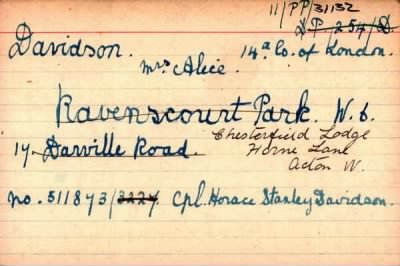 11/PP/31132
D P/254/D.
Davidson. 14a Co. of London.
Mrs Alice.
Ravenscourt Park. W.6.
17 Darville Road.
Chesterfield Lodge
Horne Lane
Acton W.
No. 511873/3227. Cpl. Horace Stanley Davidson.